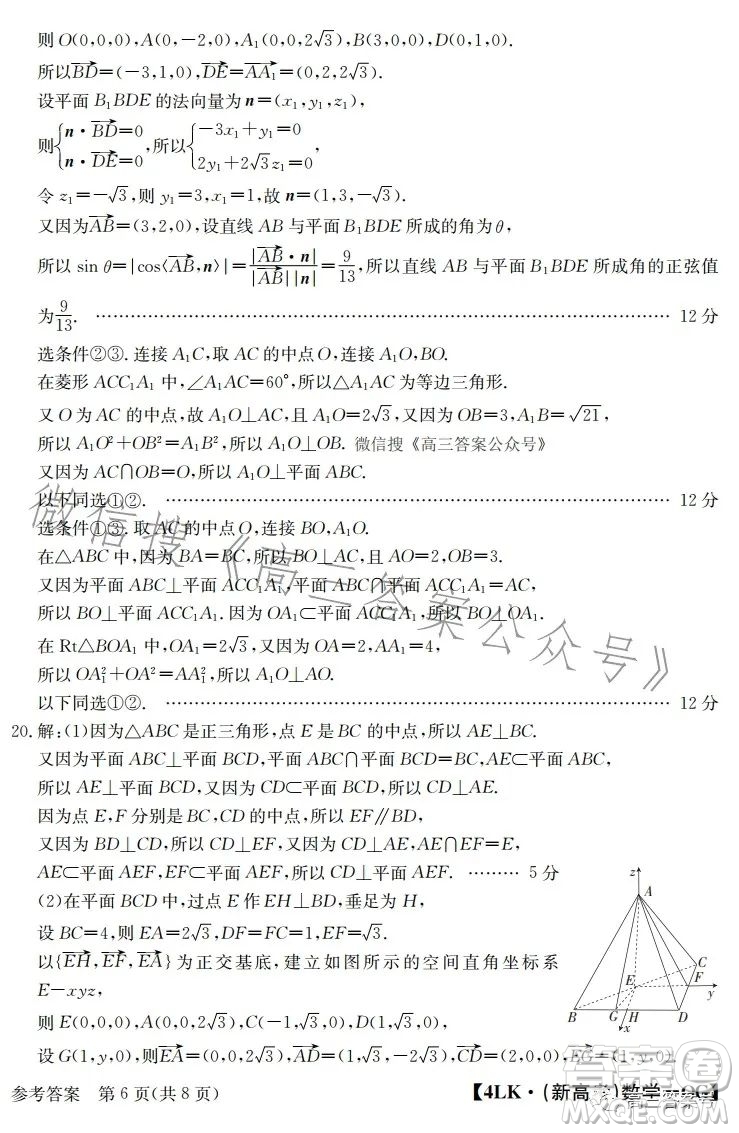 则O(0,0,0),A(0,-2,0),A₁(0,0,2√3),B(3,0,0),D(0,1,0).
所以BD→=(-3,1,0),DE→=AA₁→=(0,2,2√3).
设平面B₁BDE的法向量为n=(x₁,y₁,z₁),
则{n·BD→=0 n·DE→=0,所以{-3x₁+y₁=0 2y₁+2√3z₁=0,
令z₁=-√3,则y₁=3,x₁=1,故n=(1,3,-√3).
又因为AB→=(3,2,0),设直线AB与平面B₁BDE所成的角为θ,
所以sin θ=|cos⟨AB→,n⟩|=|AB→·n|/|AB→||n|=9/13,所以直线AB与平面B₁BDE所成角的正弦值
为9/13. ………… 12分
选条件②③.连接A₁C,取AC的中点O,连接A₁O,BO.
在菱形ACC₁A₁中,∠A₁AC=60°,所以△A₁AC为等边三角形.
又O为AC的中点,故A₁O⊥AC,且A₁O=2√3,又因为OB=3,A₁B=√21,
所以A₁O²+OB²=A₁B²,所以A₁O⊥OB. 微信搜《高三答案公众号》
又因为AC∩OB=O,所以A₁O⊥平面ABC.
以下同选①②. ………… 12分
选条件①③.取AC的中点O,连接BO,A₁O.
在△ABC中,因为BA=BC,所以BO⊥AC,且AO=2,OB=3.
又因为平面ABC⊥平面ACC₁A₁,平面ABC∩平面ACC₁A₁=AC,
所以BO⊥平面ACC₁A₁.因为OA₁⊂平面ACC₁A₁,所以BO⊥OA₁.
在Rt△BOA₁中,OA₁=2√3,又因为OA=2,AA₁=4,
所以OA₁²+OA²=AA₁²,所以A₁O⊥AO.
以下同选①②. ………… 12分
20.解:(1)因为△ABC是正三角形,点E是BC的中点,所以AE⊥BC.
又因为平面ABC⊥平面BCD,平面ABC∩平面BCD=BC,AE⊂平面ABC,
所以AE⊥平面BCD,又因为CD⊂平面BCD,所以CD⊥AE.
因为点E,F分别是BC,CD的中点,所以EF∥BD,
又因为BD⊥CD,所以CD⊥EF,又因为CD⊥AE,AE∩EF=E,
AE⊂平面AEF,EF⊂平面AEF,所以CD⊥平面AEF. ……… 5分
(2)在平面BCD中,过点E作EH⊥BD,垂足为H,
设BC=4,则EA=2√3,DF=FC=1,EF=√3.
以{EH→,EF→,EA→}为正交基底,建立如图所示的空间直角坐标系
E-xyz,
则E(0,0,0),A(0,0,2√3),C(-1,√3,0),D(1,√3,0),
设G(1,y,0),则EA→=(0,0,2√3),AD→=(1,√3,-2√3),CD→=(2,0,0),EG→=(1,y,0).
z
A
C
E
F
y
B
G
H
D
x
参考答案 第6页(共8页)
【4LK·(新高考)数学-QG】
微信搜《高三答案公众号》
答案圈
MXQE.COM